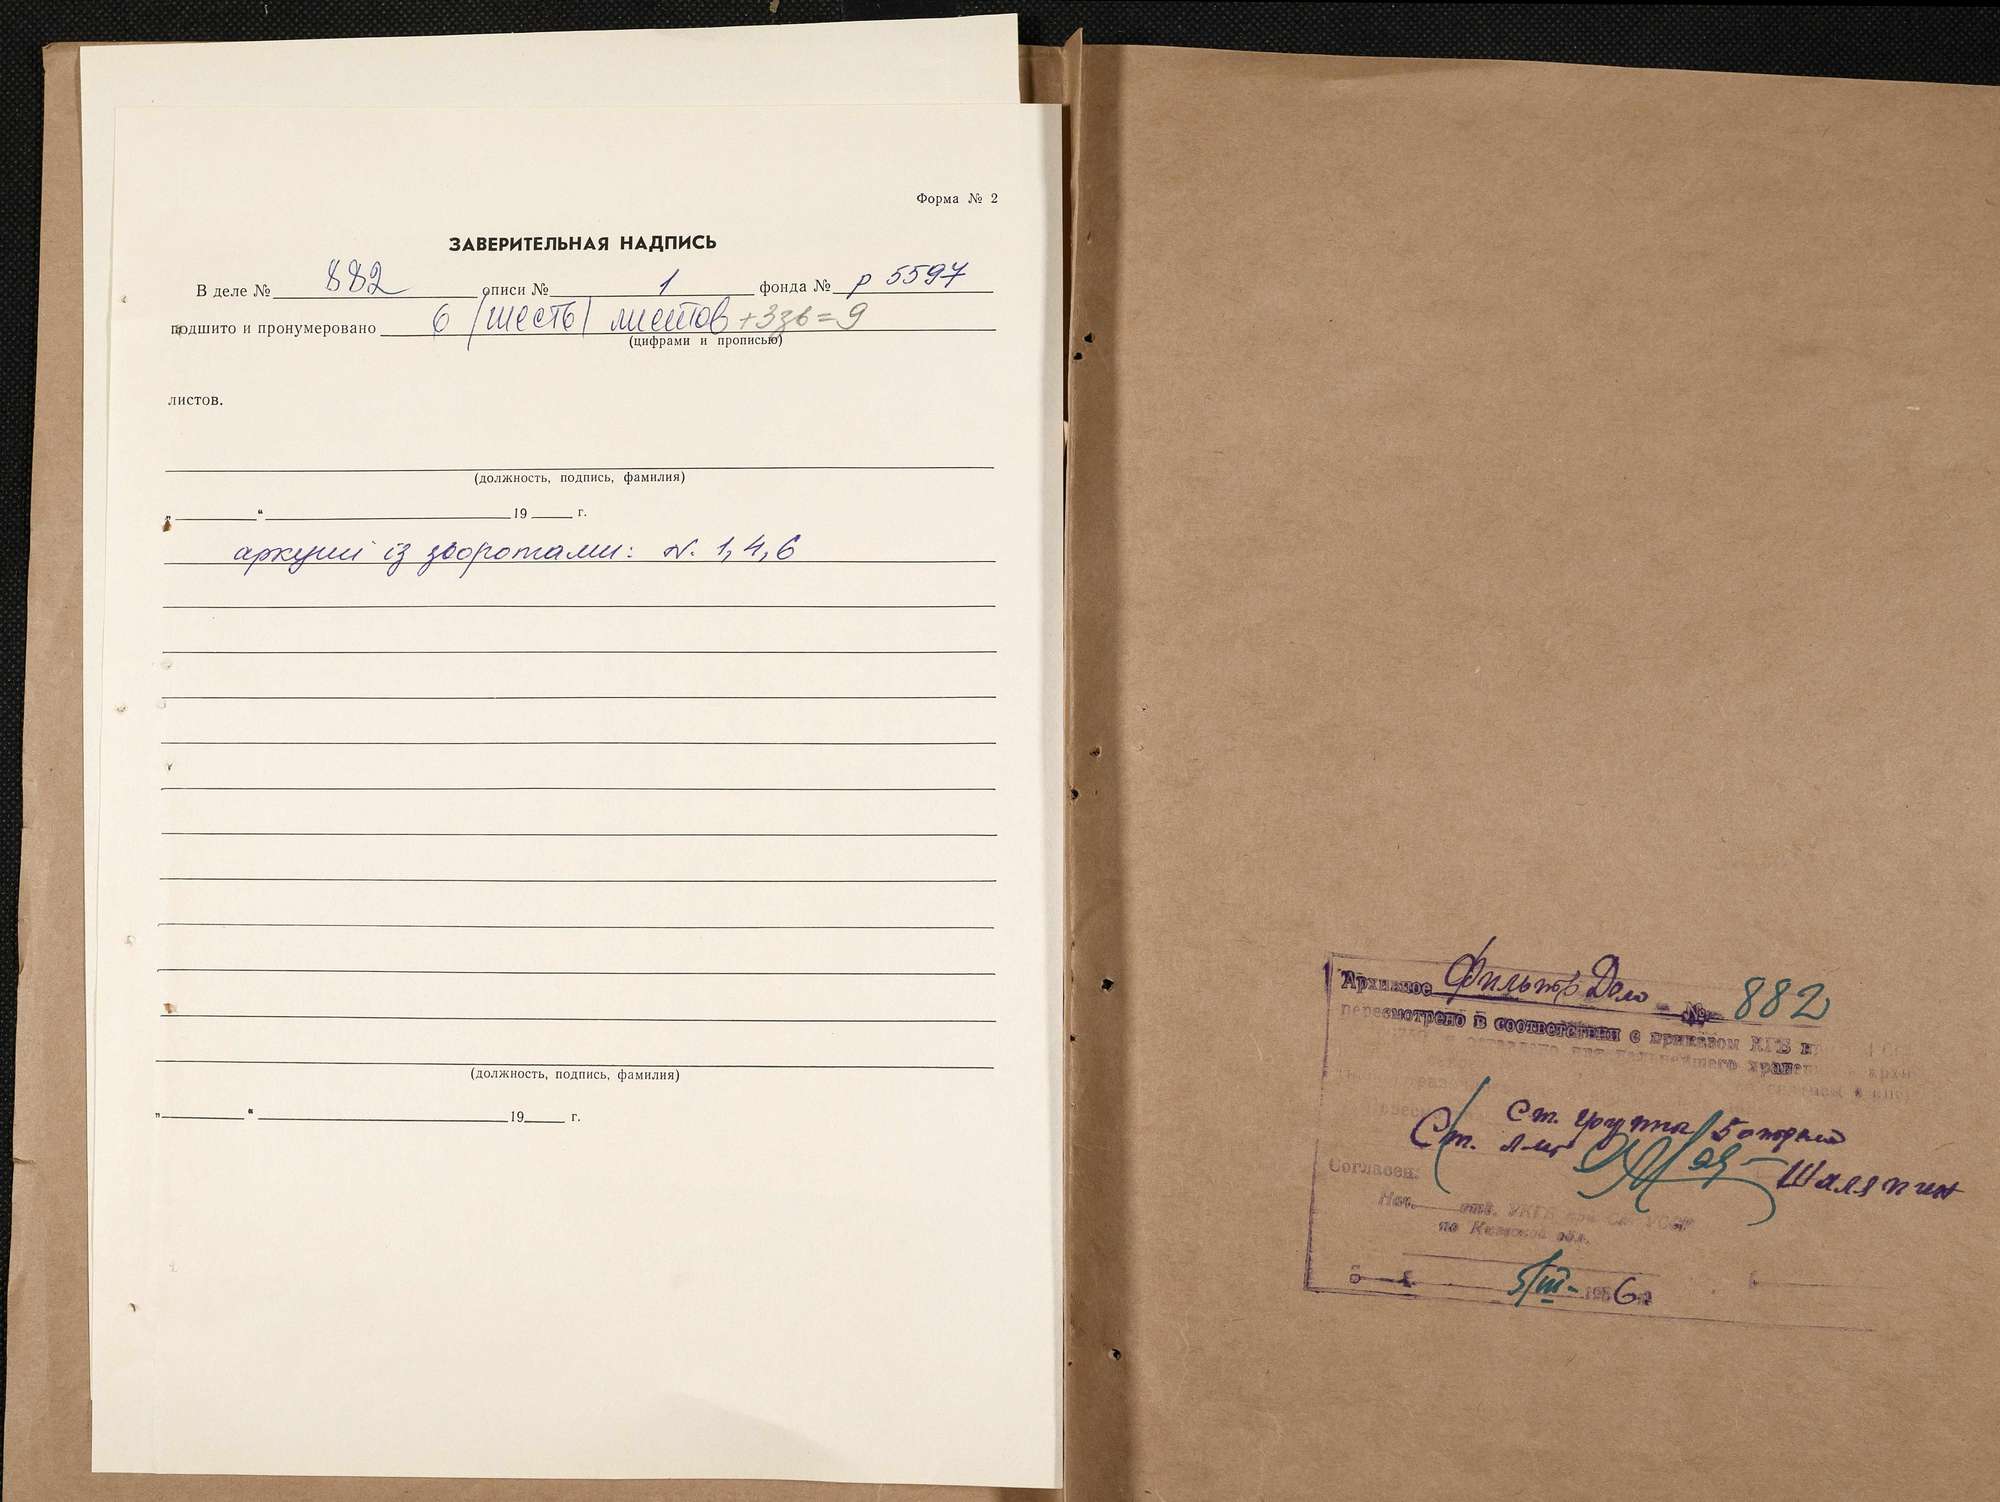 Форма № 2
ЗАВЕРИТЕЛЬНАЯ НАДПИСЬ
В деле № 882 описи № 1 фонда № р 5597
подшито и пронумеровано 6 (шесть) листов +3зв=9
(цифрами и прописью)
листов.
(должность, подпись, фамилия)
„ “ 19 г.
аркуші із зворотами: N. 1, 4, 6
(должность, подпись, фамилия)
„ “ 19 г.
Архивное Фильтр Дело № 882
пересмотрено в соответствии с приказом КГБ
дальнейшего
Ст. группы
Ст. л-нт Шаляпин
Согласен:
Нач. отд. УКГБ при См УССР
по Киевской обл.
5/III- 1956 г.